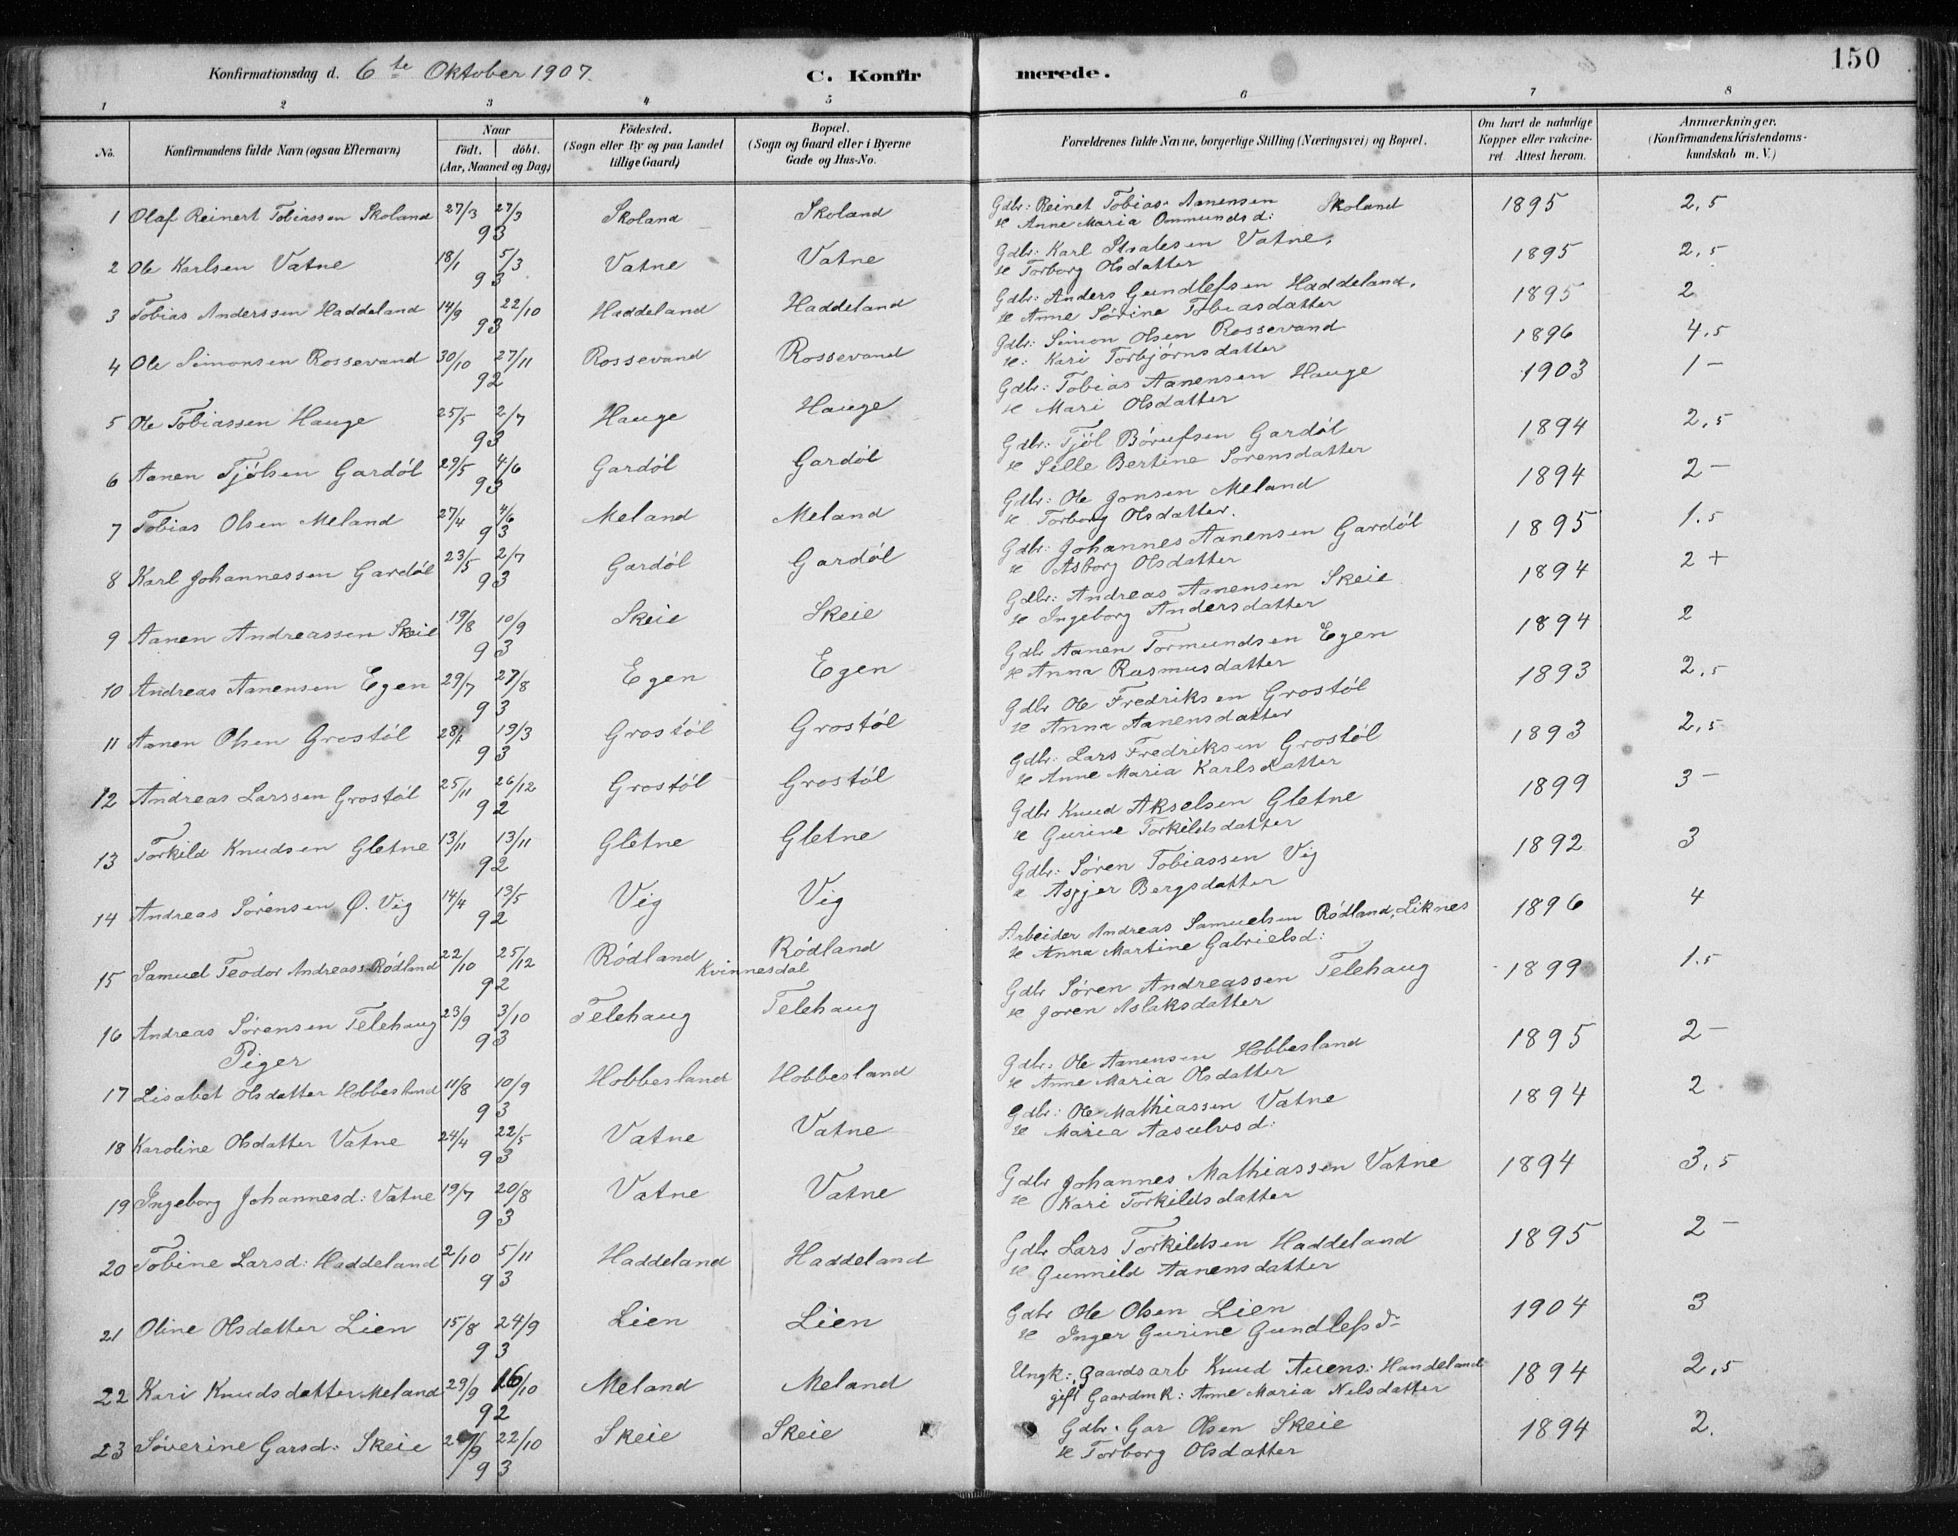 150
Konfirmationsdag d. 6te Oktober 1907. C. Konfirmerede.
1 2 3 4 5 6 7 8
No. Konfirmandens fulde Navn (ogsaa Efternavn) Naar födt. döbt. (Aar, Maaned og Dag) Födested. (Sogn eller By og paa Landet tillige Gaard) Bopæl. (Sogn og Gaard eller i Byerne Gade og Hus-No. Forældrenes fulde Navne, borgerlige Stilling (Næringsvei) og Bopæl. Om havt de naturlige Kopper eller vakcineret. Attest herom. Anmærkninger. (Konfirmandens Kristendomskundskab m. V.)
1 Olaf Reinert Tobiassen Skoland 27/3 27/3 93 Skoland Skoland Gdbr: Reinet Tobias Aanensen Skoland 1895 2,5
Anne Maria Ommundsd:
2 Ole Karlsen Vatne 18/1 5/3 93 Vatne Vatne Gdbr: Karl Vatne. 1895 2,5
Torborg Olsdatter
3 Tobias Anderssen Haddeland 14/9 22/10 93 Haddeland Haddeland Gdbr: Anders Gundlefsen Haddeland. 1895 2
Anne Sørine Tobiasdatter
4 Ole Simonsen Rossevand 30/10 27/11 92 Rossevand Rossevand Gdbr: Simon Olsen Rossevand 1896 4.5
Kari Torbjørnsdatter
5 Ole Tobiassen Hauge 25/5 2/7 93 Hauge Hauge Gdbr: Tobias Aanensen Hauge 1903 1-
Mari Olsdatter
6 Aanen Tjølsen Gardøl 29/5 4/6 93 Gardøl Gardøl Gdbr: Tjøl Børufsen Gardøl 1894 2,5
Sille Bertine Sørensdatter
7 Tobias Olsen Meland 27/4 4/6 93 Meland Meland Gdbr: Ole Jonsen Meland 1894 2-
Torborg Olsdatter.
8 Karl Johannessen Gardøl 23/5 2/7 93 Gardøl Gardøl Gdbr: Johannes Aanensen Gardøl 1895 1.5
Asborg Olsdatter
9 Aanen Andreassen Skeie 19/8 10/9 93 Skeie Skeie Gdbr: Andreas Aanensen Skeie 1894 2+
Ingeborg Andersdatter
10 Andreas Aanensen Egen 29/7 27/8 93 Egen Egen Gdbr Aanen Tormundsen Egen 1894 2
Anna Rasmusdatter
11 Aanen Olsen Grostøl 28/1 19/3 93 Grostøl Grostøl Gdbr Ole Fredriksen Grostøl 1893 2.5
Anna Aanensdatter
12 Andreas Larssen Grostøl 25/11 26/12 92 Grostøl Grostøl Gdbr: Lars Fredriksen Grostøl 1893 2.5
Anne Maria Karlsdatter
13 Torkild Knudsen Gletne 13/11 13/11 92 Gletne Gletne Gdbr Knud Akselsen Gletne 1899 3-
Gurine Torkildsdatter
14 Andreas Sørensen Ø. Vig 14/4 13/5 92 Vig Vig Gdbr: Søren Tobiassen Vig 1892 3
Asgjer Bergsdatter
15 Samuel Teodor Andreass. Rødland 22/10 25/12 92 Rødland Kvinnesdal Rødland Arbeider Andreas Samuelsen Rødland, Liknes 1896 4
Anna Martine Gabrielsd:
16 Andreas Sørensen Telehaug 23/9 3/10 93 Telehaug Telehaug Gdbr Søren Andreassen Telehaug 1899 1.5
Joren Aslaksdatter
Piger
17 Lisabet Olsdatter Hobbesland 11/8 10/9 93 Hobbesland Hobbesland Gdbr: Ole Aanensen Hobbesland 1895 2-
Anne Maria Olsdatter
18 Karoline Olsdatter Vatne 24/4 22/5 93 Vatne Vatne Gdbr: Ole Mathiassen Vatne 1894 2
Maria Aasulvsd:
19 Ingeborg Johannesd: Vatne 19/7 20/8 93 Vatne Vatne Gdbr Johannes Mathiassen Vatne 1894 3,5
Kari Torkildsdatter
20 Tobine Larsd: Haddeland 2/10 5/11 93 Haddeland Haddeland Gdbr Lars Torkildsen Haddeland 1895 2-
Gunnild Aanensdatter
21 Oline Olsdatter Lien 15/8 24/9 93 Lien Lien Gdbr Ole Olsen Lien 1904 3
Inger Gurine Gundlefsd
22 Kari Knudsdatter Meland 29/9 16/10 92 Meland Meland Ungk: Gaardsarb Knud Handeland 1894 2,5
gift Gaardmk: Anne Maria Nilsdatter
23 Søverine Garsd: Skeie 22/10 93 Skeie Skeie Gdbr. Gar Olsen Skeie 1894 2.
Torborg Olsdatter